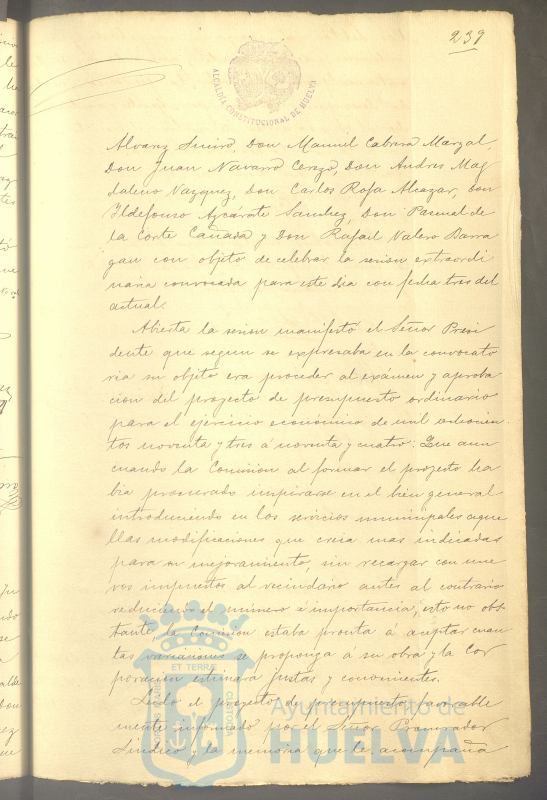 239
ALCALDÍA CONSTITUCIONAL DE HUELVA
Alvarez Suiro, Don Manuel Cabrera Marzal,
Don Juan Navarro Cerezo, Don Andres Mag
daleno Vazquez, Don Carlos Rofa Alcazar, Don
Ildefonso Azcárate Sanchez, Don Pascual de
la Corte Cañada y Don Rafael Valero Barra
gan con objeto de celebrar la sesion extraordi
naria convocada para este dia con fecha tres del
actual.
Abierta la sesion manifestó el Señor Presi
dente que segun se expresaba en la convocato
ria su objeto era proceder al exámen y aproba
cion del proyecto de presupuesto ordinario
para el ejercicio económico de mil ochocien
tos noventa y tres á noventa y cuatro: Que aun
cuando la Comision al formar el proyecto ha
bia procurado inspirarse en el bien general
introduciendo en los servicios municipales aque
llas modificaciones que creia mas indicadas
para su mejoramiento, sin recargar con nue
vos impuestos al vecindario antes al contrario
reduciendo el número é importancia, esto no obs
tante, la Comision estaba pronta á aceptar cuan
tas variaciones se proponga á su obra y la Cor
poracion estimára justas y convenientes.
Leido el proyecto de presupuesto favorable
mente informado por el Señor Procurador
Síndico y la memoria que le acompaña
ET TERRAE
Ayuntamiento de
HUELVA